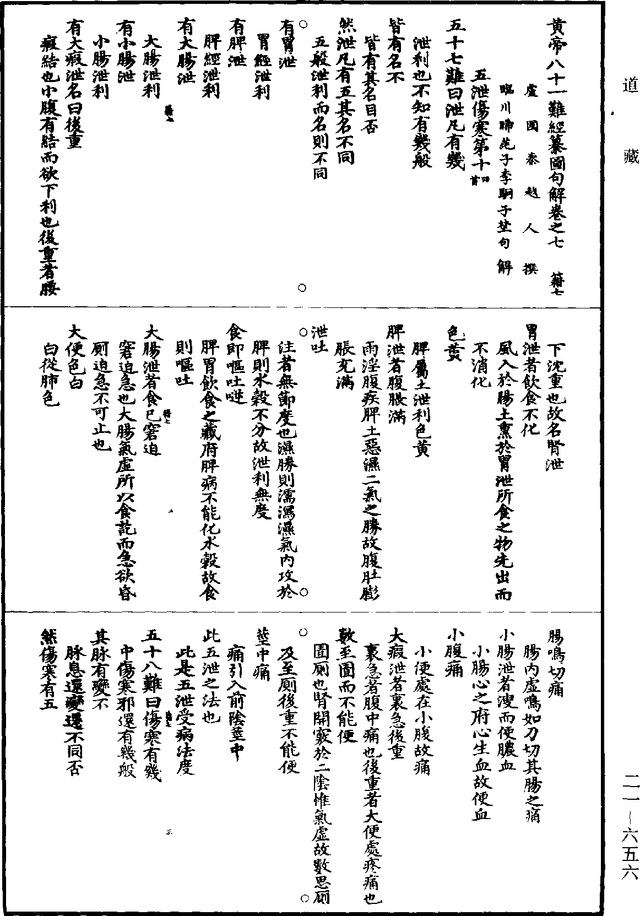 道藏
黃帝八十一難經纂圖句解卷之七　籍七
盧國秦越人撰
臨川晞范子李駉子埜句解
五泄傷寒第十四首
五十七難曰泄凡有幾
泄利也不知有幾般
皆有名不
皆有其名目否
然泄凡有五其名不同
五般泄利而名則不同
有胃泄
胃經泄利
有脾泄
脾經泄利
有大腸泄
大腸泄利
有小腸泄
小腸泄利
有大瘕泄名曰後重
瘕結也小腹有結而欲下利也後重者腰
下沈重也故名腎泄
胃泄者飲食不化
風入於腸土熏於胃泄所食之物先出而
不消化
色黃
脾屬土泄利色黃
脾泄者腹脹滿
雨淫腹疾脾土惡濕二氣之勝故腹肚膨
脹充滿
泄注
注者無節度也濕勝則濡瀉濕氣內攻於
脾則水穀不分故泄利無度
食即嘔吐逆
脾胃飲食之藏府脾病不能化水穀故食
則嘔吐
大腸泄者食已窘迫
窘迫急也大腸氣虛所以食訖而急欲登
廁迫急不可止也
大便色白
白從肺色
腸鳴切痛
腸內虛鳴如刀切其腸之痛
小腸泄者溲而便膿血
小腸心之府心生血故便血
小腹痛
小便處在小腹故痛
大瘕泄者裏急後重
裏急者腹中痛也後重者大便處疼痛也
數至圊而不能便
圊廁也腎開竅於二陰惟氣虛故數思廁
及至廁後重不能便
莖中痛
痛引入前陰莖中
此五泄之法也
此是五泄受病法度
五十八難曰傷寒有幾
中傷寒邪還有幾般
其脉有變不
脉息還變還不同否
然傷寒有五
二一—六五六